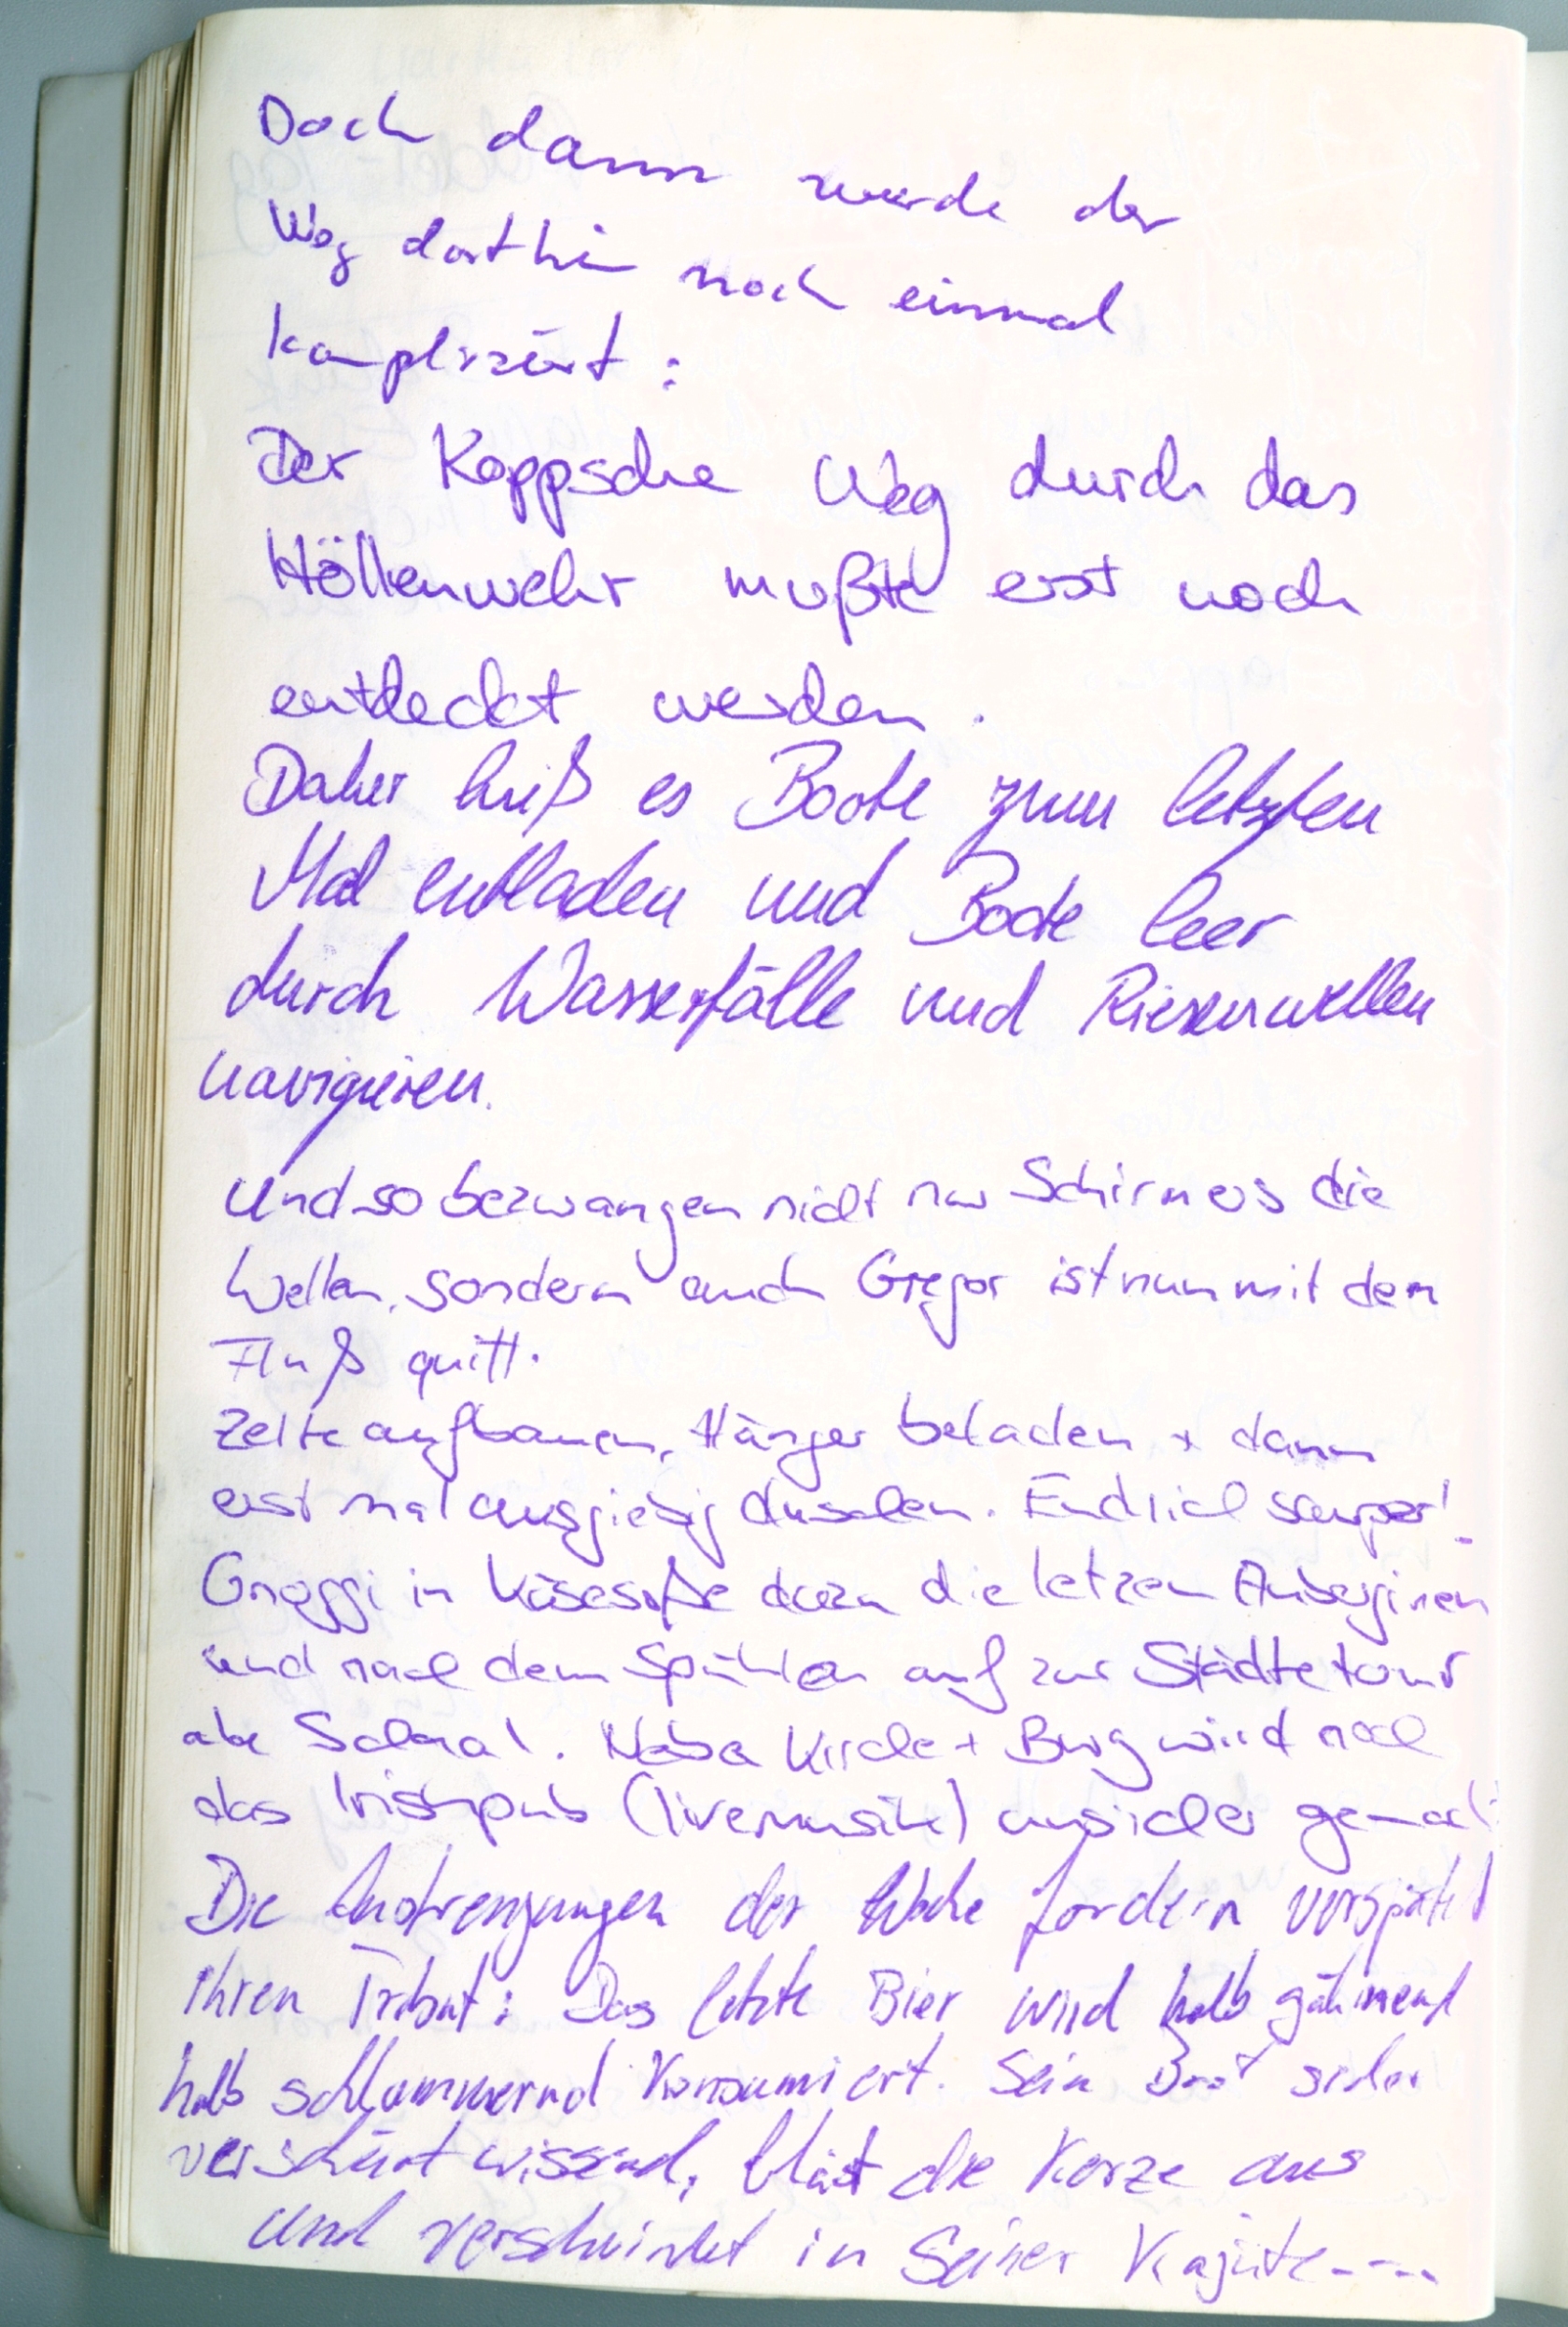 Doch dann wurde der
Weg dorthin noch einmal
kompliziert:
Der Koppsche Weg durch das
Höllenwehr mußte erst noch
entdeckt werden.
Daher hieß es Boote zum letzten
Mal entladen und Boote leer
durch Wasserfälle und Riesenwellen
navigieren.
Und so bezwangen nicht nur Schirmers die
Wellen, sondern auch Gregor ist nun mit dem
Fluß quitt.
Zelte aufbauen, Hänger beladen + dann
erst mal ausgiebig duschen. Endlich sauper!
Gnoggi in Käsesoße dazu die letzen Auberginen
und nach dem Spühlen auf zur Städtetour
Neben Kirche + Burg wird noch
das Irishpub (livemusik) unsicher gemacht
Die Anstrengungen der Woche fordern verspätet
ihren Tribut: Das letzte Bier wird halb gähnend
halb schlummernd konsumiert. Sein Boot sicher
verschnürt wissend, bläst die Kerze aus
und verschwindet in Seiner Kajüte----